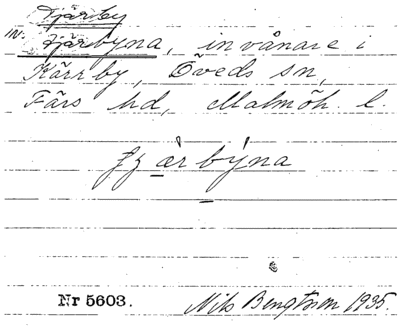 Tjärby
inv. Tjärbyna, invånare i
Kärrby, Öveds sn,
Färs hd, Malmöh. l.
Nr 5603.
Nils Bengtsson 1935.